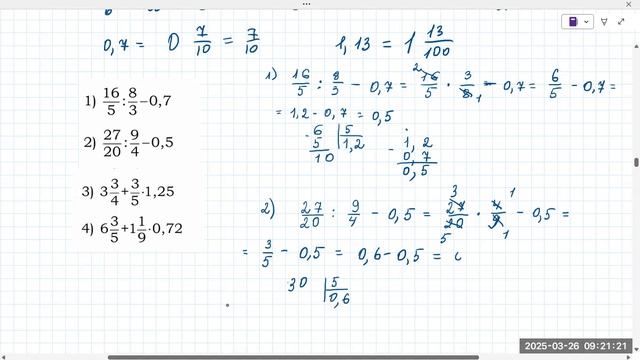 0,7 = 0 7/10 = 7/10
1,13 = 1 13/100
1) 16/5 : 8/3 − 0,7
2) 27/20 : 9/4 − 0,5
3) 3 3/4 + 3/5 · 1,25
4) 6 3/5 + 1 1/9 · 0,72
1) 16/5 : 8/3 − 0,7 = 16/5 · 3/8 − 0,7 = 6/5 − 0,7 =
2 1
= 1,2 − 0,7 = 0,5
6 | 5
5 | 1,2
10
− 1,2
0,7
0,5
2) 27/20 : 9/4 − 0,5 = 27/20 · 4/9 − 0,5 =
3 1 5 1
= 3/5 − 0,5 = 0,6 − 0,5 =
30 | 5
0,6
2025-03-26 09:21:21